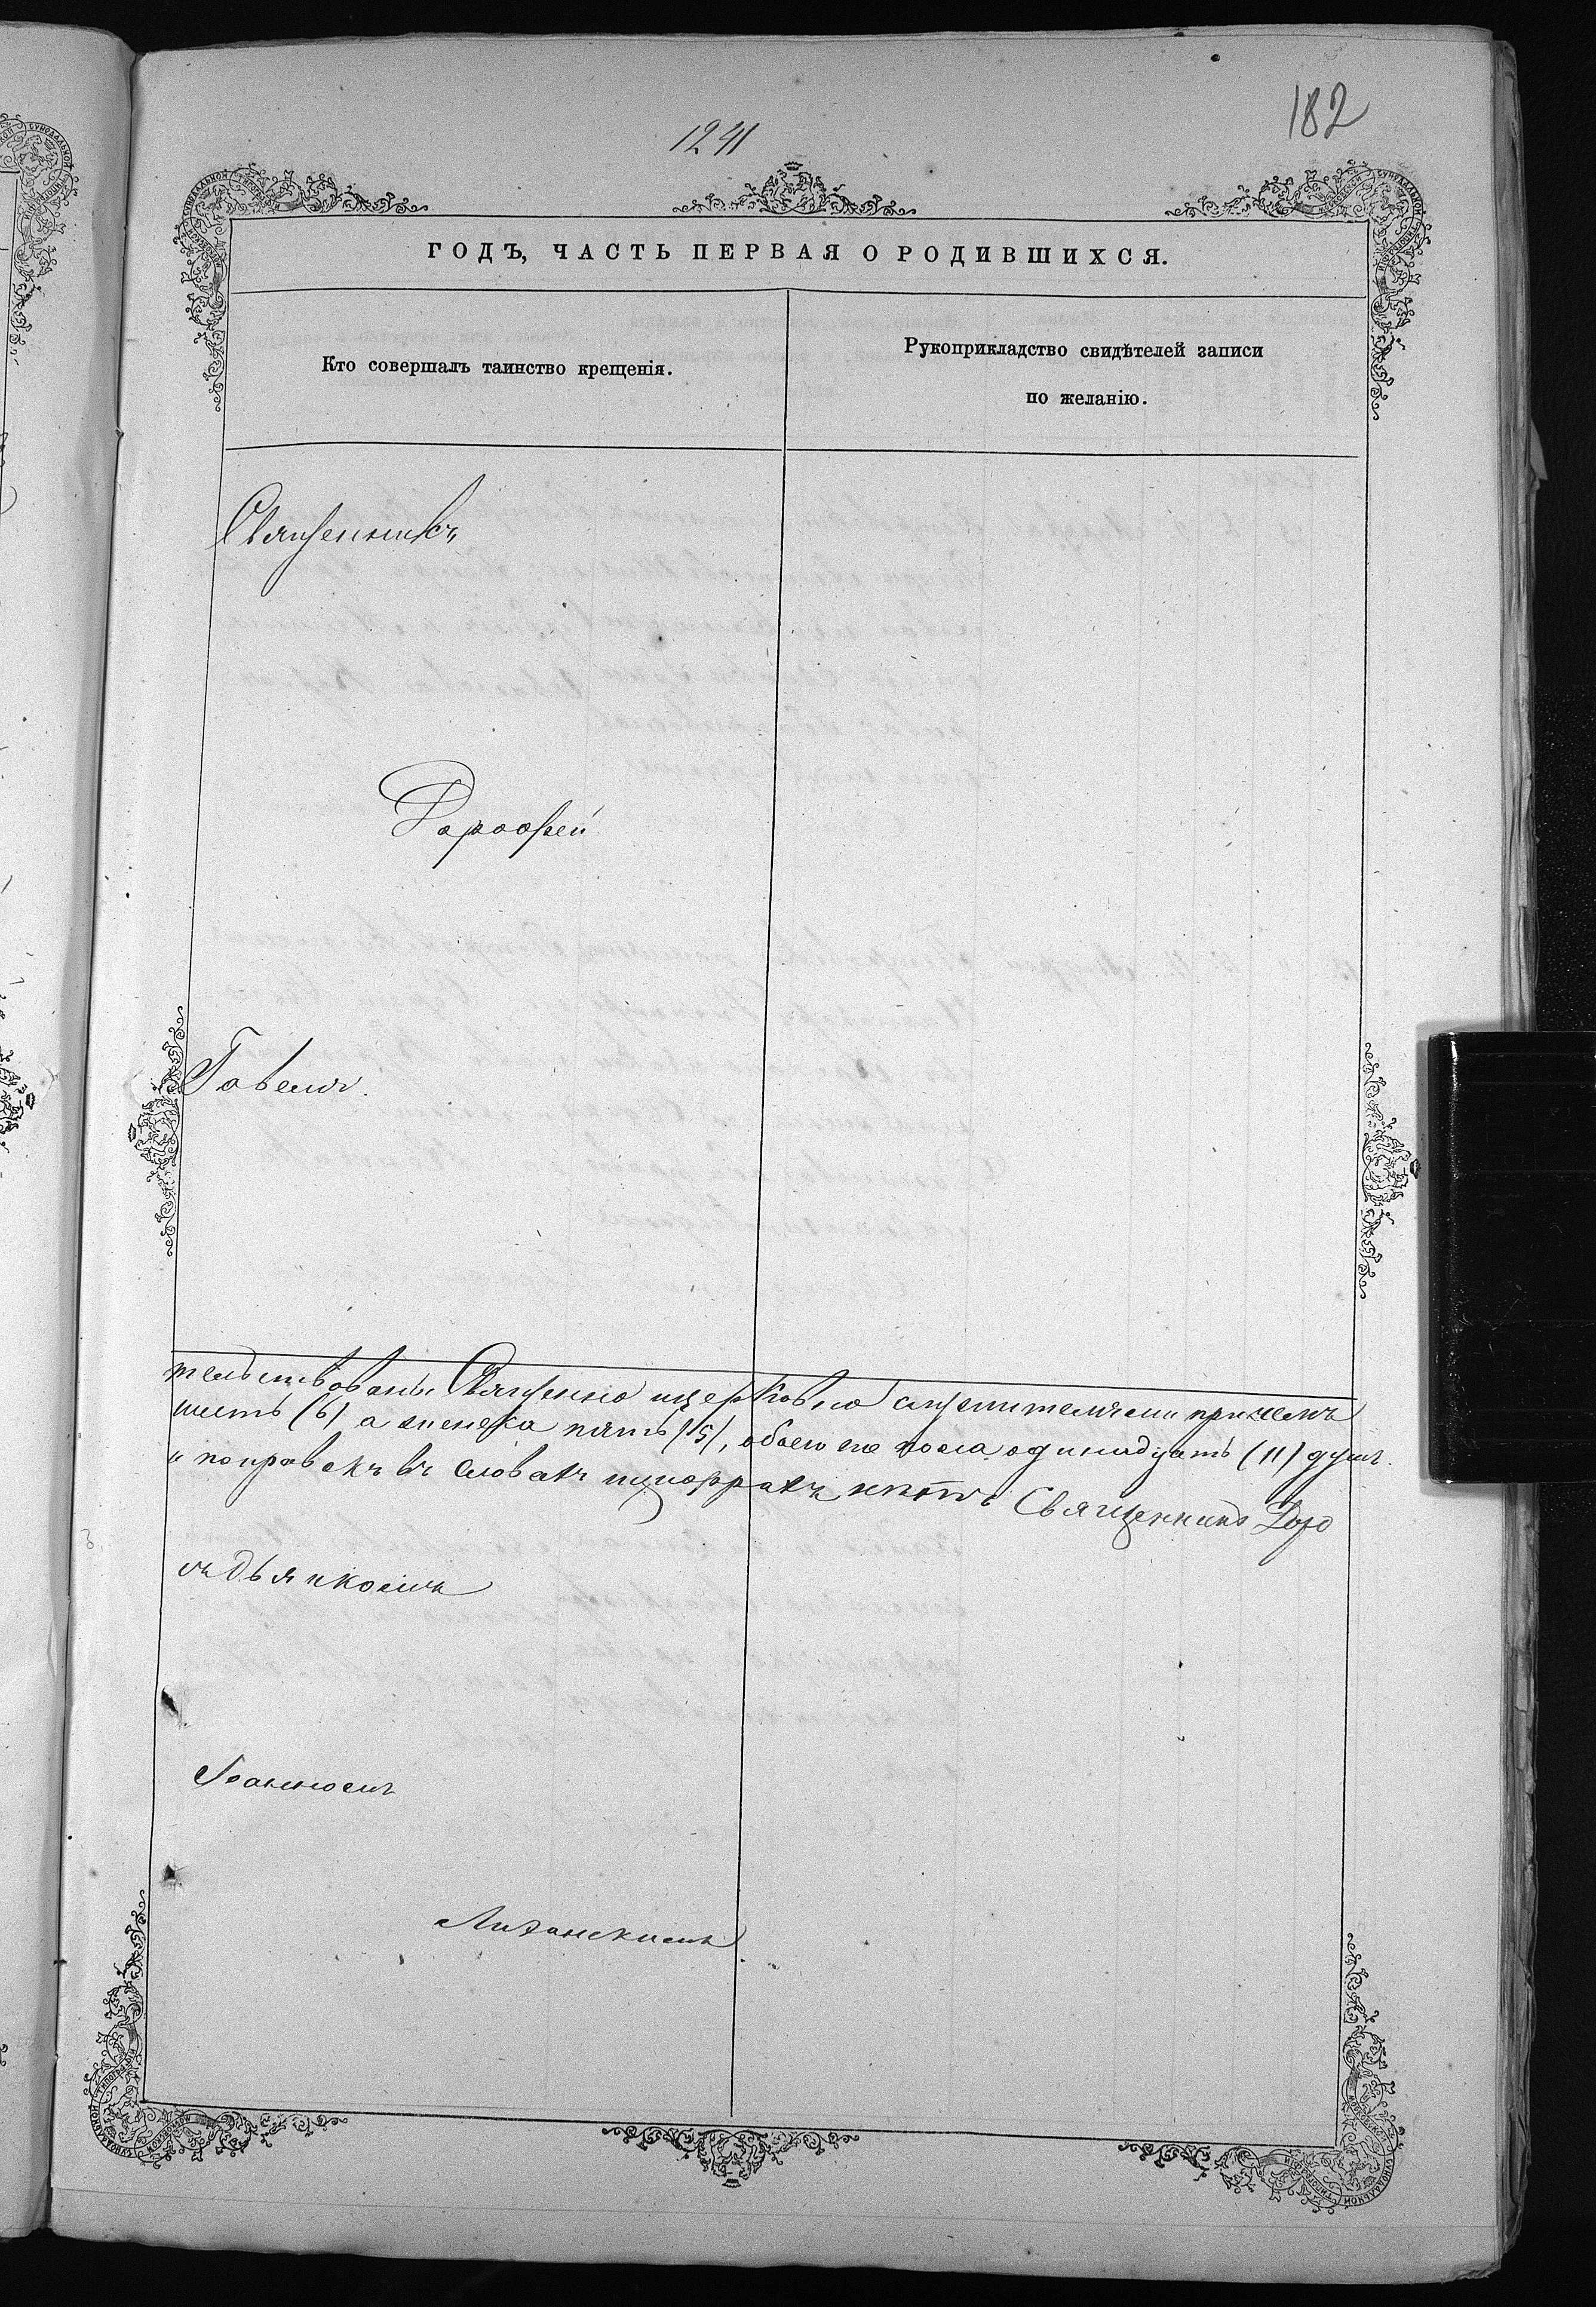 182
1241
ГОДЪ, ЧАСТЬ ПЕРВАЯ О РОДИВШИХСЯ.
Кто совершалъ таинство крещенія.
Рукоприкладство свидѣтелей записи
по желанію.
Священникъ
Дороѳей
тельствованы Священно ицерковно служителями причемъ
шесть (6) а женска пять (5), обоего пола одинадцать (11) душъ.
и поправокъ въ словахъ ицифрахъ нѣтъ Священникъ Доро
съ дьячкомъ
Іоанномъ
СУНОДАЛЬНОЙ